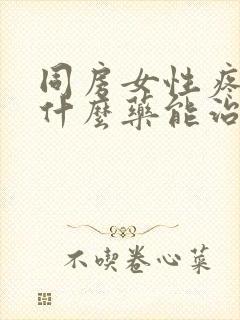 同房女性疼
什麼藥能治
不喫卷心菜